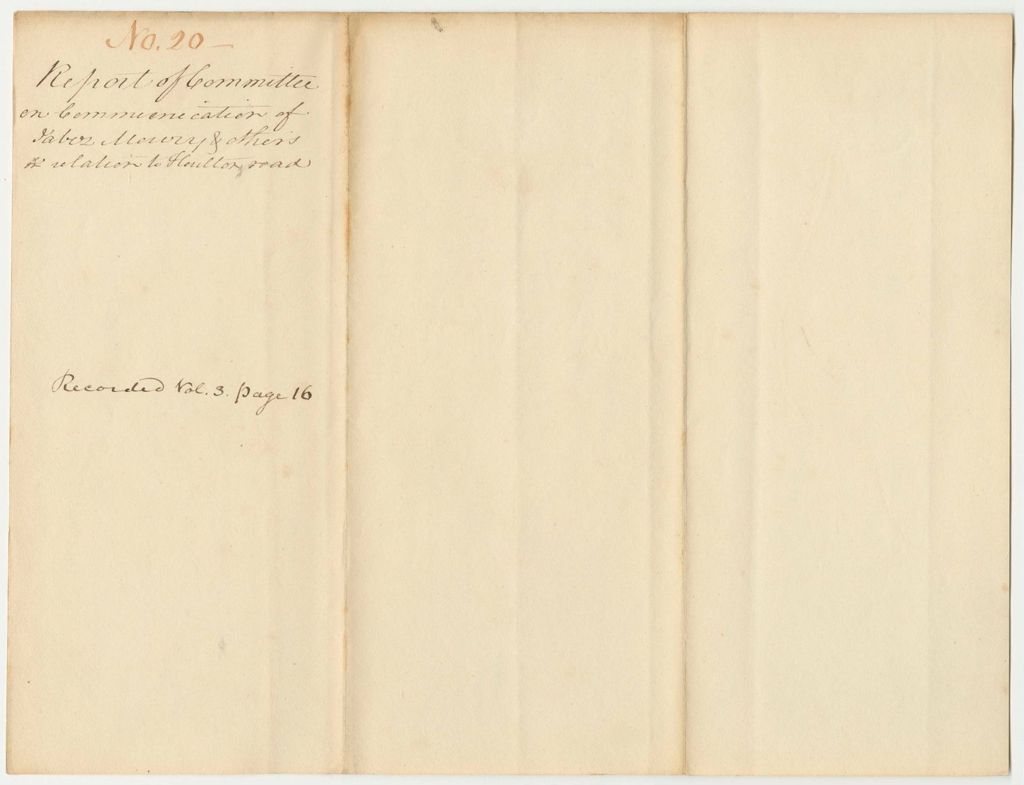 No. 20 —
Report of Committee
on Communication of
Jabez Mowry & others
in relation to Houlton road
Recorded Vol. 3. page 16